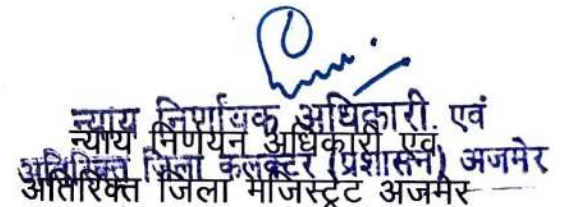 न्याय निर्णायक अधिकारी एवं
न्याय निर्णयन अधिकारी एवं
अतिरिक्त जिला कलक्टर (प्रशासन) अजमेर
अतिरिक्त जिला मजिस्ट्रेट अजमेर